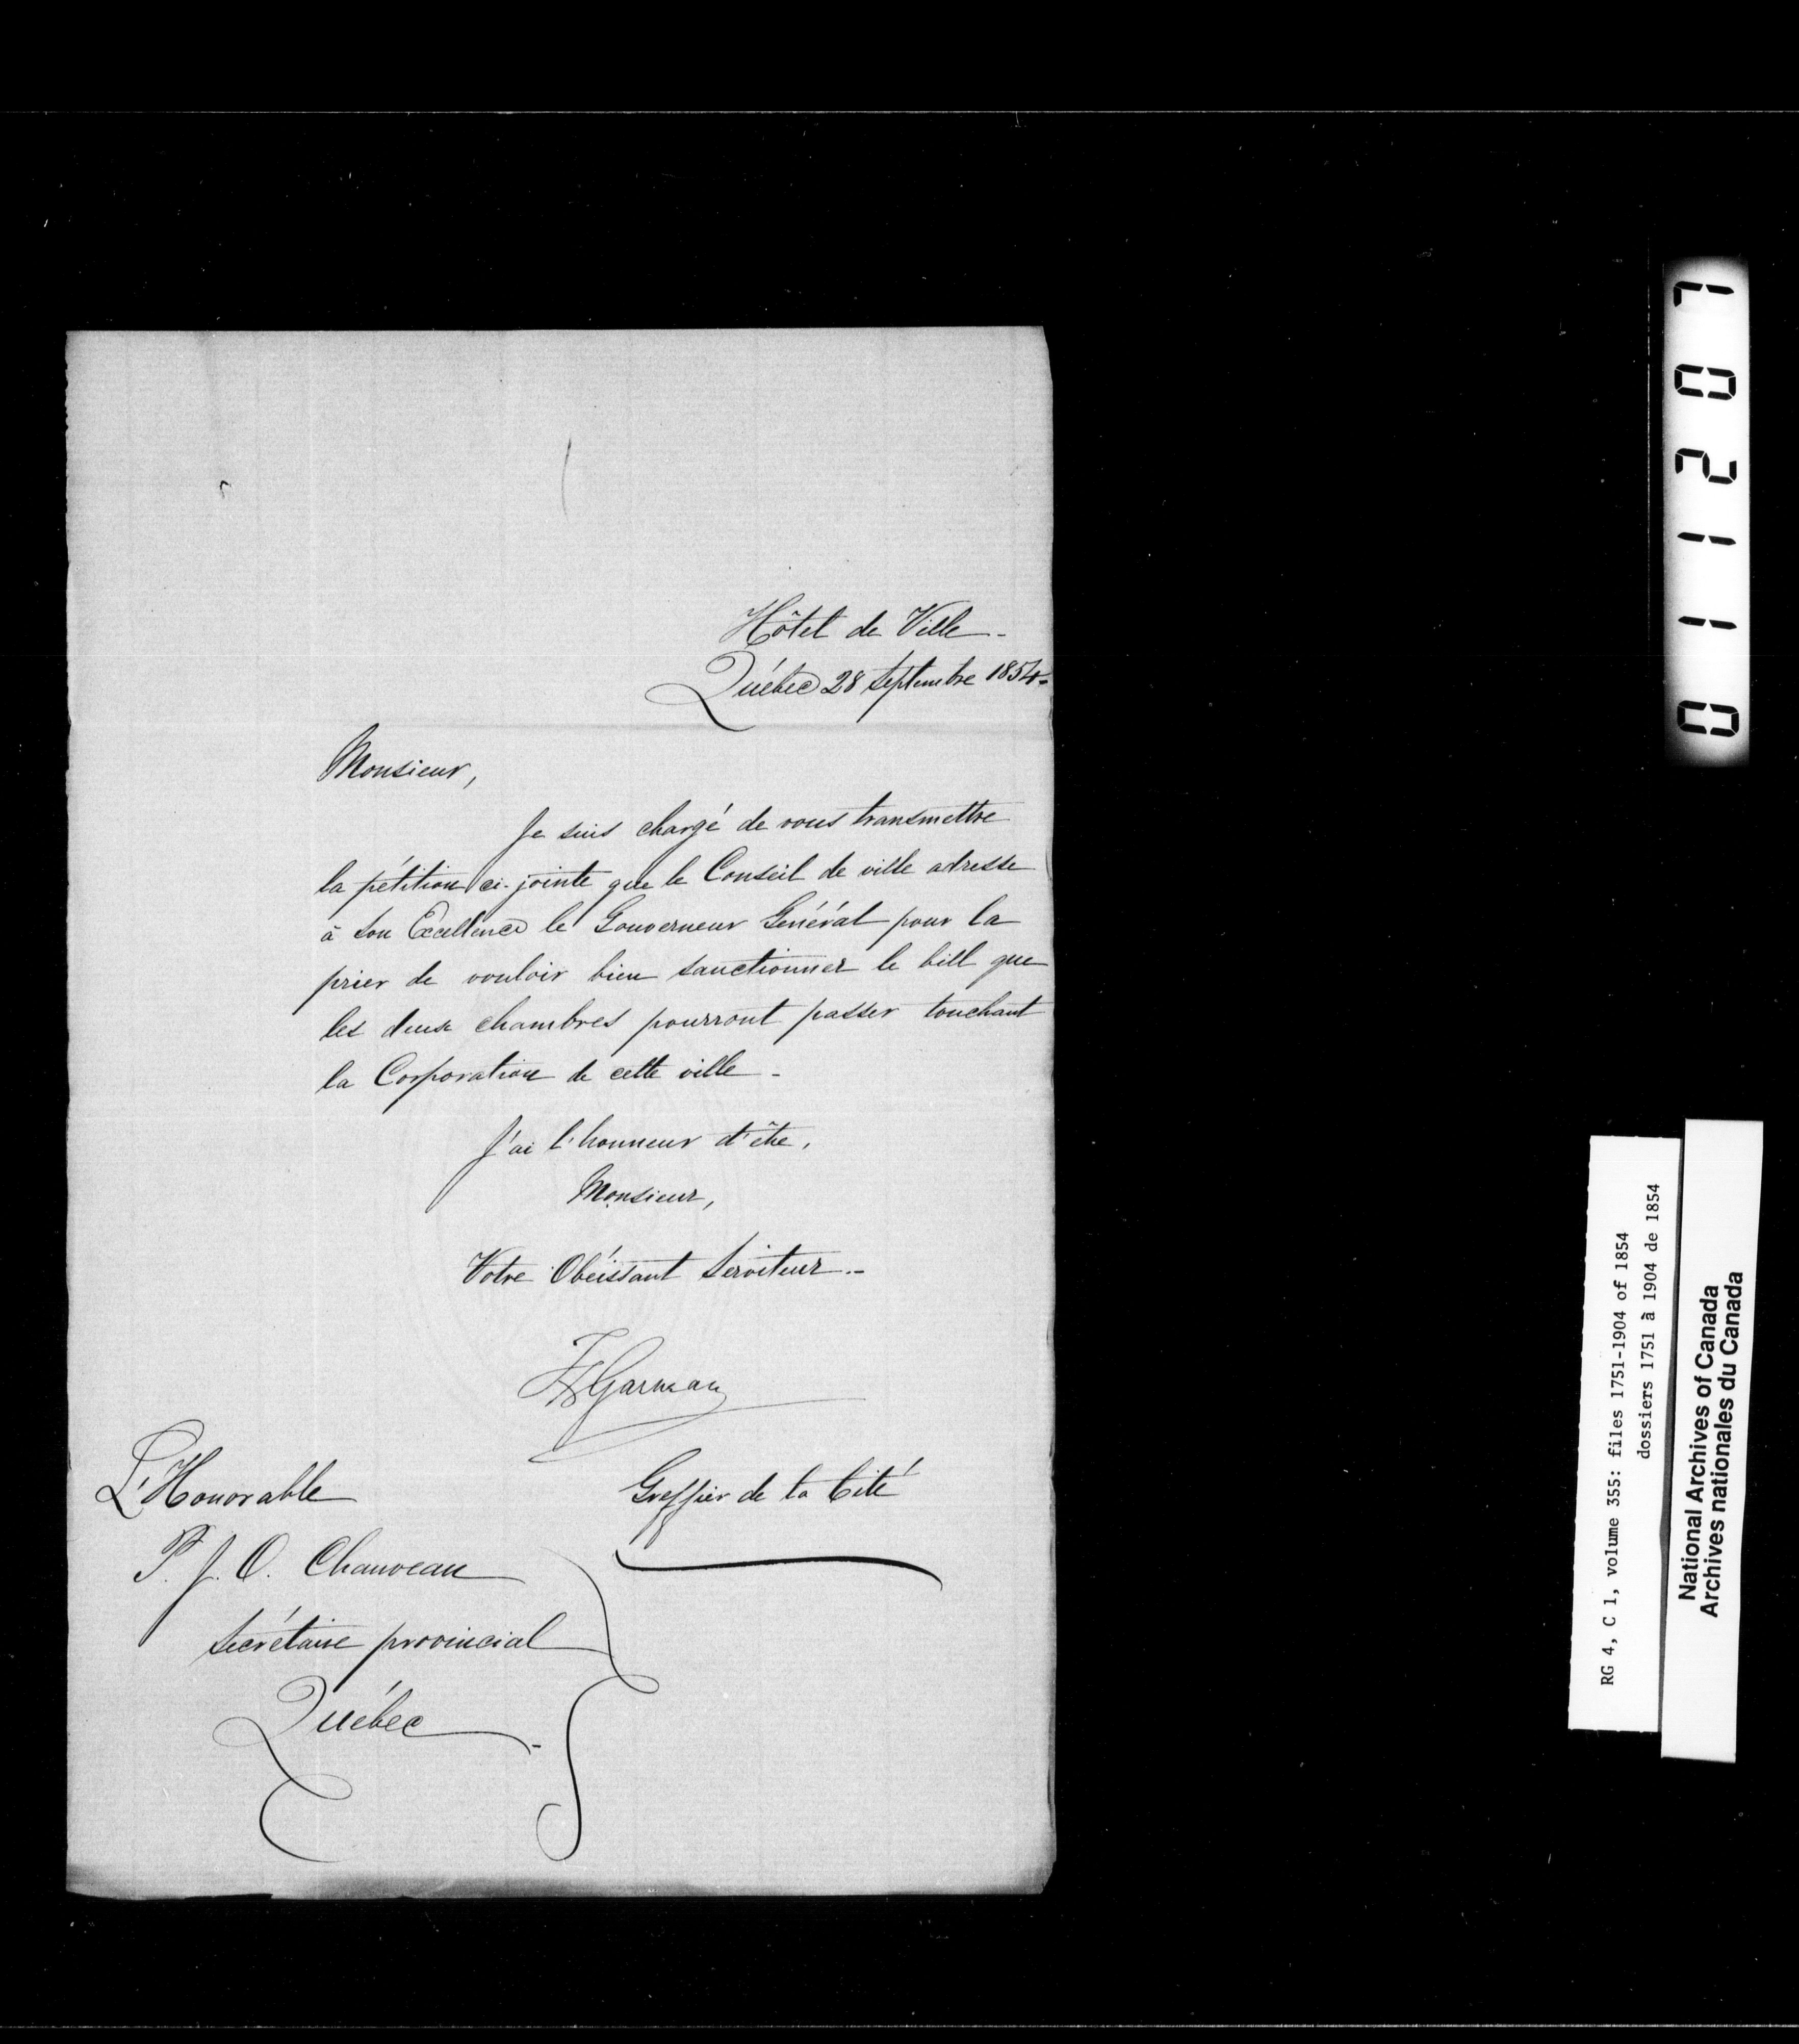 Hôtel de Ville -
Québec 28 Septembre 1854 -
Monsieur,
Je suis chargé de vous transmettre
la pétition ci-jointe que le Conseil de ville adresse
à Son Excellence le Gouverneur Général pour la
prier de vouloir bien sanctionner le bill que
les deux chambres pourront passer touchant
la Corporation de cette ville -
J'ai l'honneur d'être,
Monsieur,
Votre Obéissant Serviteur. -
FX Garneau
Greffier de la Cité
L'Honorable
P. J. O. Chauveau
Secrétaire provincial
Québec -
011207
RG 4, C 1, volume 355: files 1751-1904 of 1854
dossiers 1751 à 1904 de 1854
National Archives of Canada
Archives nationales du Canada